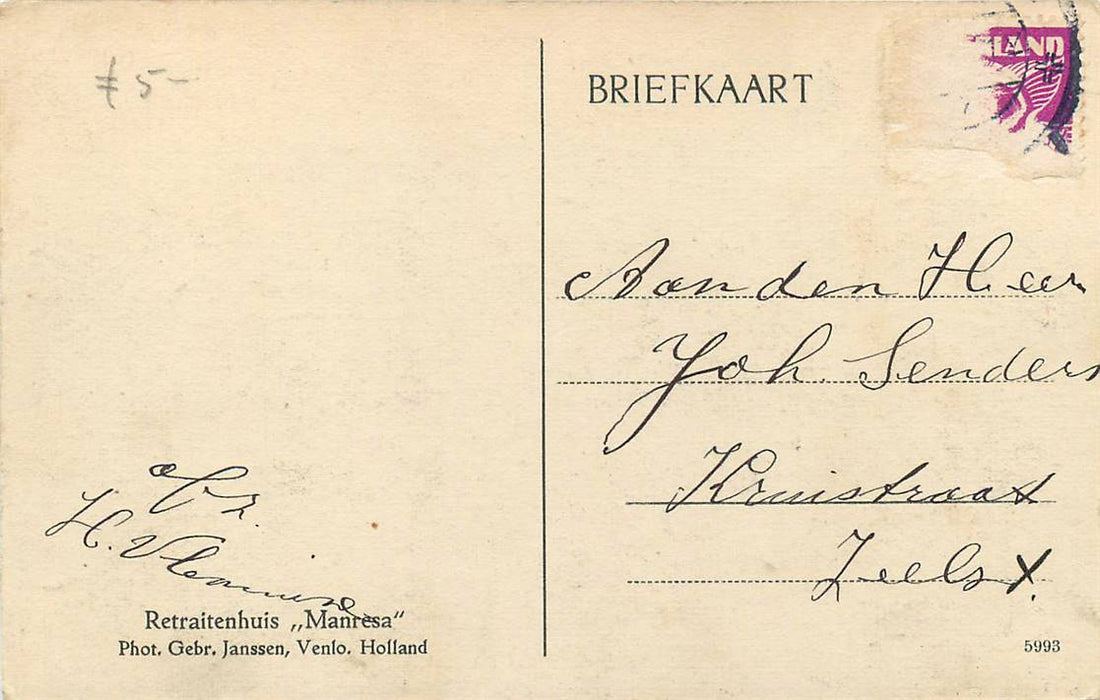 5-
BRIEFKAART
LAND
Aan den Heer
Joh. Senders
Kruisstraat
Zeelst.
Afz.
H. Vlemmine
Retraitenhuis „Manresa“
Phot. Gebr. Janssen, Venlo. Holland
5993